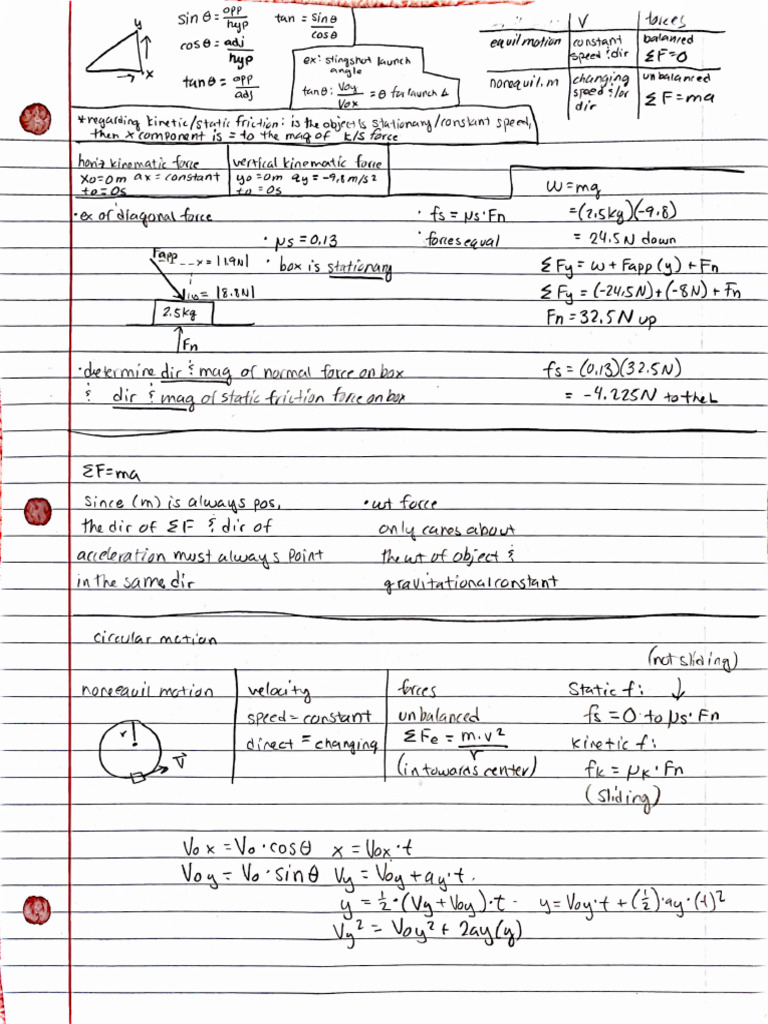 y
x
sin θ = opp/hyp
cos θ = adj/hyp
tan θ = opp/adj
tan = sinθ/cosθ
ex: slingshot launch
angle
tanθ: Voy/Vox = θ for launch ∠
V | forces
equil motion | constant speed & dir | balanced ΣF=0
nonequil. m | changing speed &/or dir | unbalanced ΣF=ma
*regarding kinetic/static friction: is the object is stationary/constant speed,
then x component is = to the mag of k/s force
horiz kinematic force | vertical kinematic force
x0=0m ax = constant | y0=0m ay = -9.8m/s2
t0=0s | t0=0s
• ex of diagonal force
• μs=0.13
• box is stationary
• fs = μs·Fn
• forces equal
Fapp
x= |1.9N|
= |8.8N|
2.5kg
Fn
W=mg
=(2.5kg)(-9.8)
= 24.5N down
ΣFy = w + Fapp(y) + Fn
ΣFy = (-24.5N)+(-8N) + Fn
Fn = 32.5N up
• determine dir & mag of normal force on box
& dir & mag of static friction force on box
fs = (0.13)(32.5N)
= -4.225N to the L
ΣF=ma
Since (m) is always pos,
the dir of ΣF & dir of
acceleration must always point
in the same dir
• wt force
only cares about
the wt of object &
gravitational constant
circular motion
nonequil motion | velocity | forces
speed = constant | unbalanced
direct = changing | ΣFc = m·v²/r
(in towards center)
r
V
(not sliding)
Static f: ↓
fs = 0 to μs·Fn
kinetic f:
fk = μk·Fn
(sliding)
Vox = Vo·cosθ x = Vox·t
Voy = Vo·sinθ Vy = Voy + ay·t.
y = ½·(Vy + Voy)·t · y = Voy·t + (½)·ay·(t)²
Vy² = Voy² + 2ay(y)